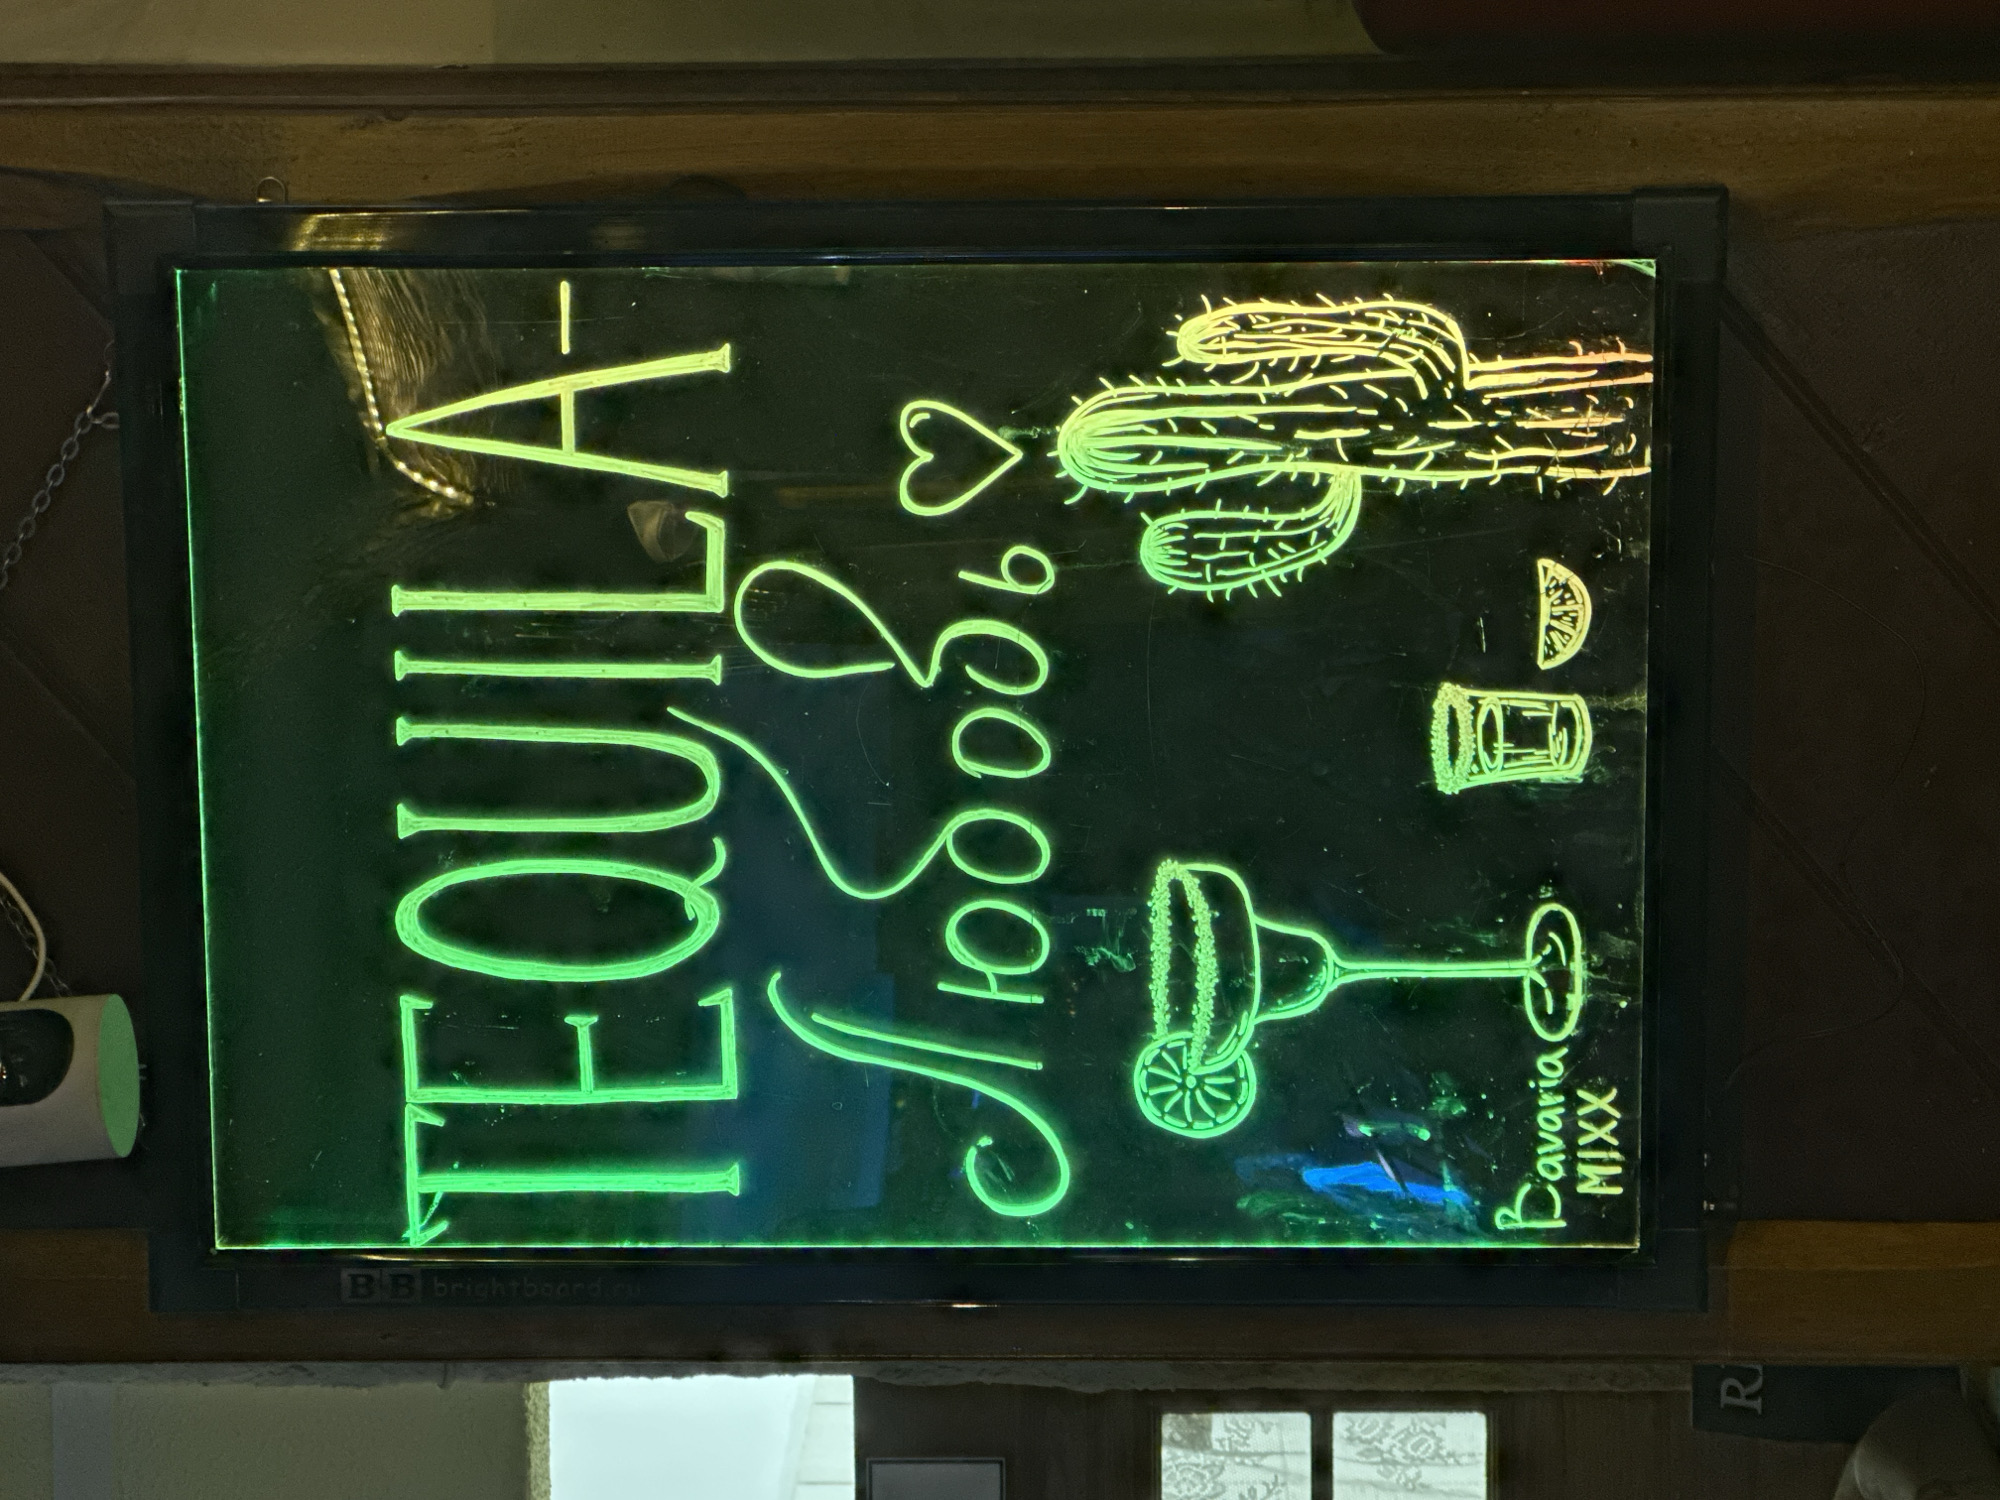 TEQUILA-
Любовь
Bavaria
MIXX
BB brightboard.ru